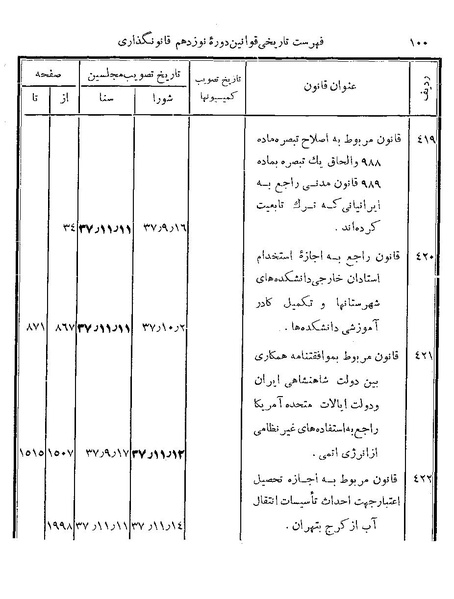 ۱۰۰ فهرست تاریخی قوانین دورهٔ نوزدهم قانونگذاری
ردیف عنوان قانون تاریخ تصویب کمیسیونها تاریخ تصویب مجلسین صفحه
شورا سنا از تا
۴۱۹ قانون مربوط به اصلاح تبصره ماده
۹۸۸ والحاق یك تبصره بماده
۹۸۹ قانون مدنی راجع به
ایرانیانی که ترك تابعیت
کرده‌اند . ۳۷٫۹٫۱۶ ۳۷٫۱۱٫۱۱ ۳۴
۴۲۰ قانون راجع به اجازهٔ استخدام
استادان خارجی دانشکده‌های
شهرستانها و تکمیل کادر
آموزشی دانشکده‌ها . ۳۷٫۱۰٫۲ ۳۷٫۱۱٫۱۱ ۸۶۷ ۸۷۱
۴۲۱ قانون مربوط بموافقتنامه همکاری
بین دولت شاهنشاهی ایران
ودولت ایالات متحده آمریکا
راجع به استفاده‌های غیر نظامی
از انرژی اتمی . ۳۷٫۱۱٫۱۲ ۳۷٫۹٫۱۷ ۱۵۰۷ ۱۵۱۵
۴۲۲ قانون مربوط به اجازه تحصیل
اعتبار جهت احداث تأسیسات انتقال
آب از کرج بتهران . ۳۷٫۱۱٫۱۴ ۳۷٫۱۱٫۱۱ ۱۹۹۸